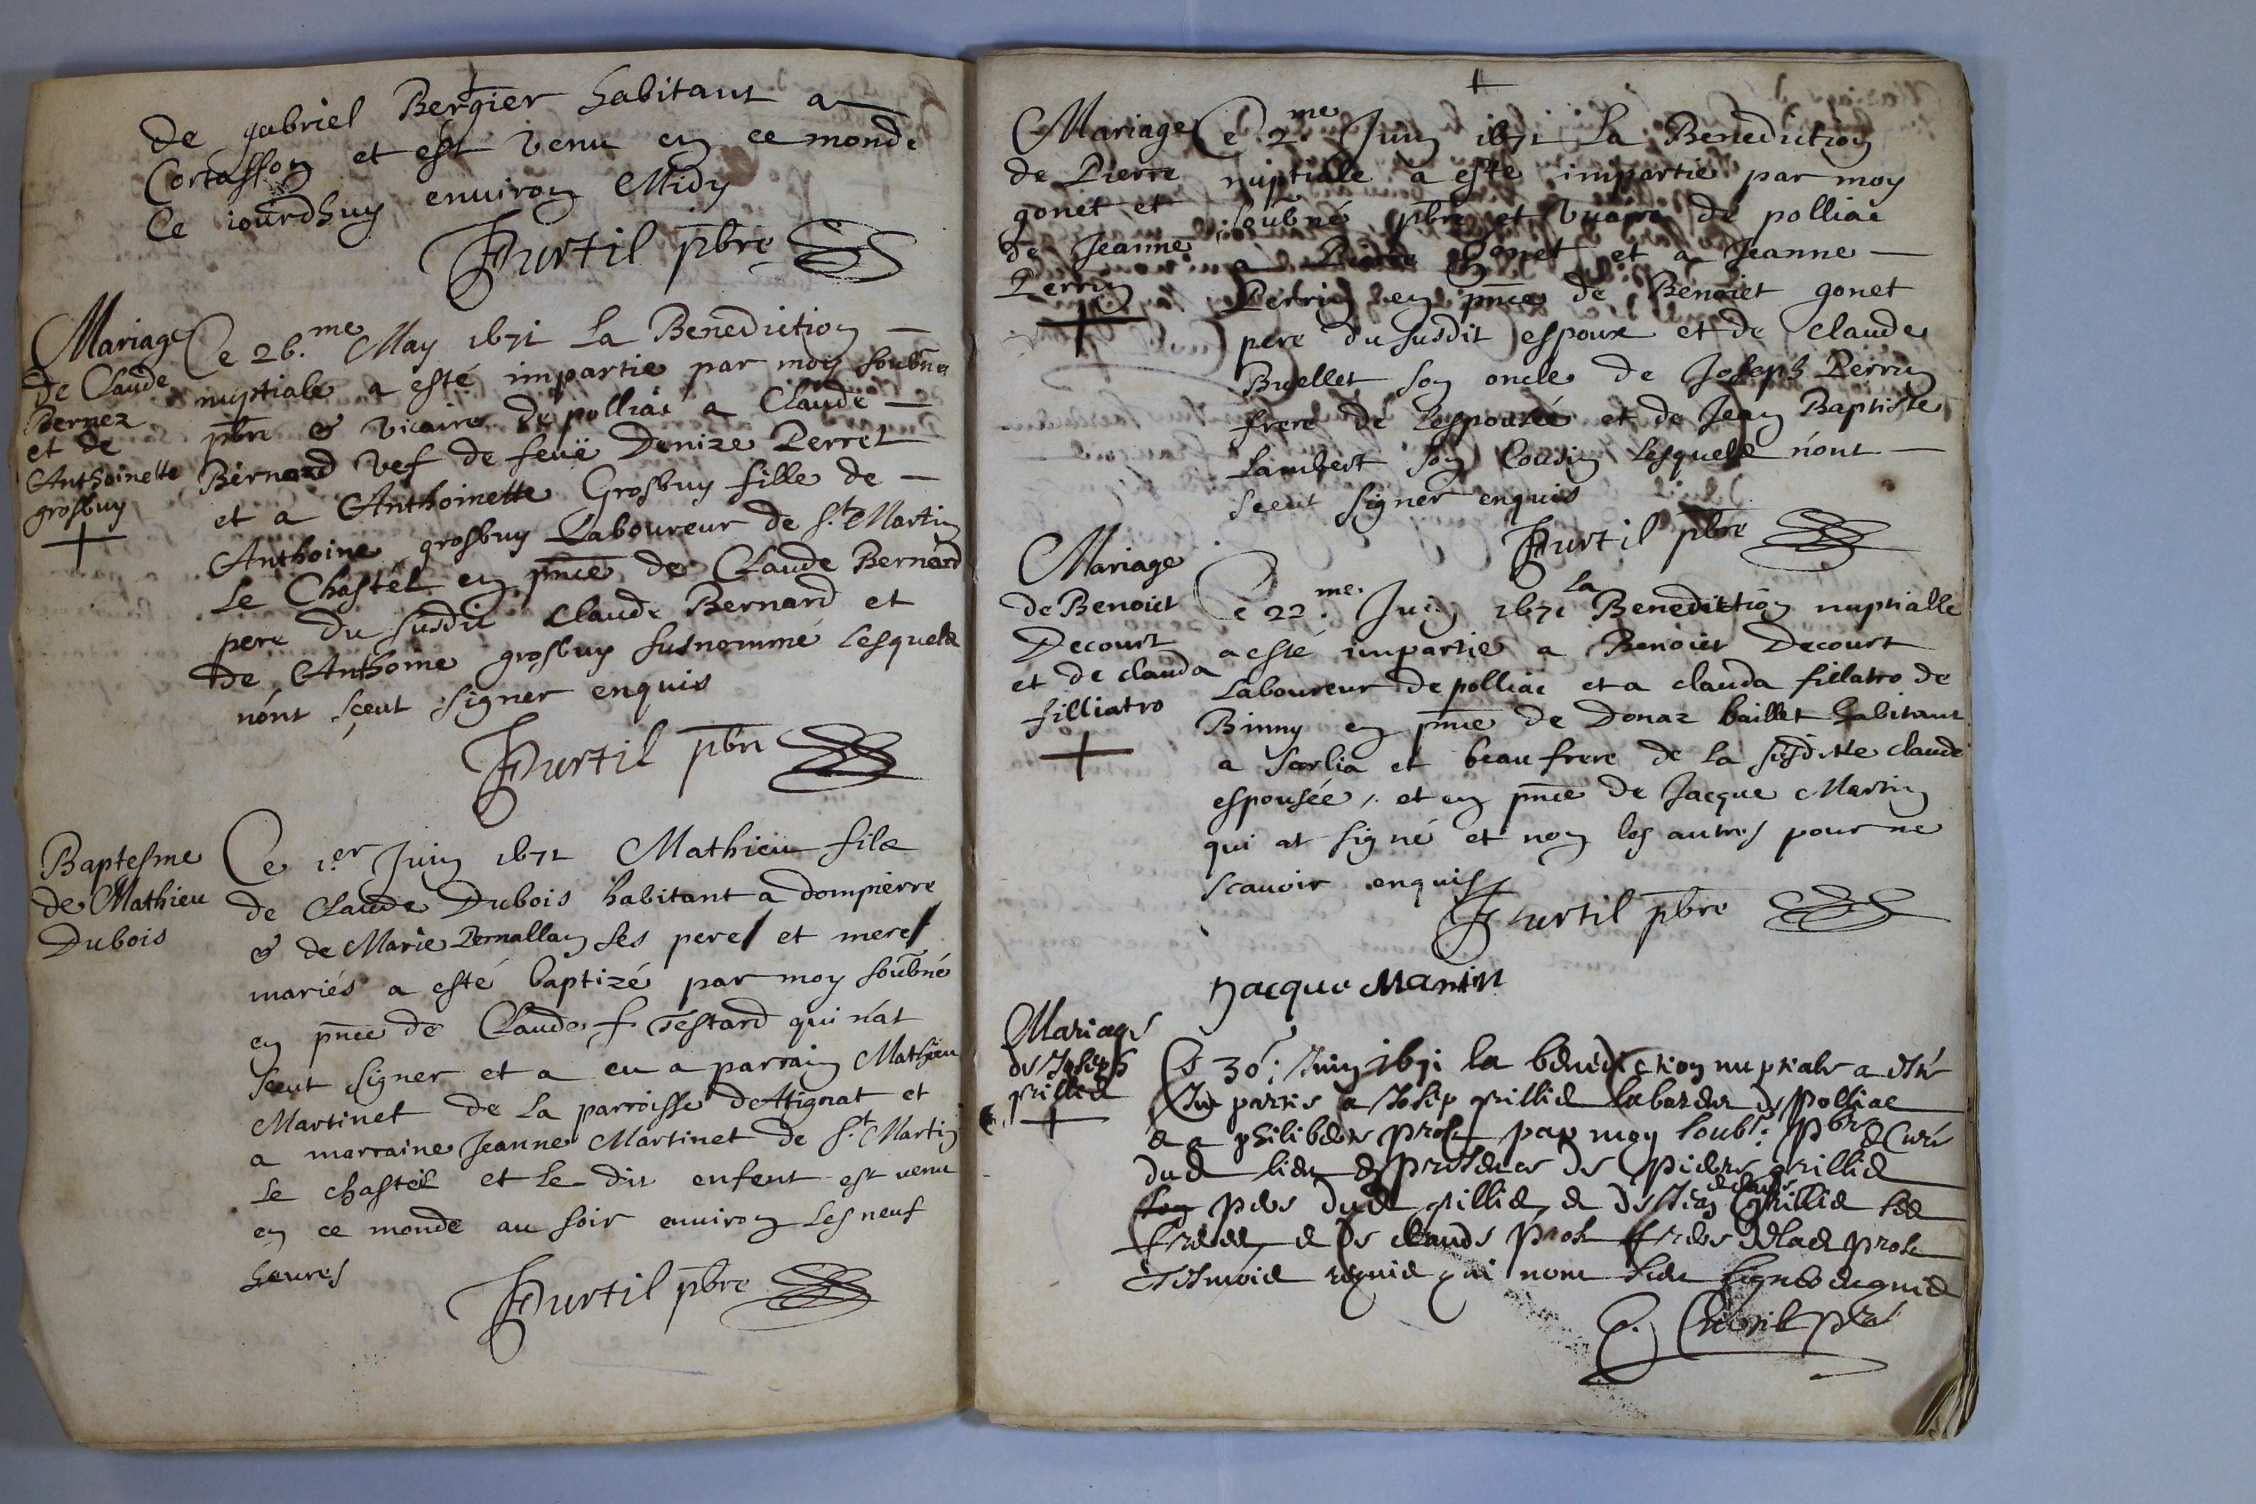 de gabriel Bergier habitant a
Cortasson et est venu en ce monde
Ce iourdhuy environ Midy
Furtil pbre
Mariage
de Claude
Bernez
et de
Anthoinette
grosbuy
Ce 26.me May 1671 La Benediction
nuptiale a esté impartie par moy soubné
pbre & vicaire de polliac a Claude
Bernard vef de feuë Denize Perret
et a Anthoinette Grosbuy fille de
Anthoine grosbuy Laboureur de St Martin
Le Chastel en pnce de Claude Bernard
pere du susdit Claude Bernard et
de Anthoine grosbuy susnommé Lesquels
nont sçeut signer enquis
Furtil pbre
Baptesme
de Mathieu
Dubois
Ce 1.er Juin 1671 Mathieu fils
de Claude Dubois habitant a dompierre
& de Marie Pernallan ses peres et meres
mariés a esté baptizé par moy soubné
en pnce de Claude f. Testard qui n'at
sceut signer et a eu a parrain Mathieu
Martinet de La parroisse dettignat et
a marraine Jeanne Martinet de St Martin
Le chastel et Le dit enfent est venu
en ce monde au soir environ Les neuf
heures
Furtil pbre
Mariage
de Pierre
gonet et
de Jeanne
Perrin
Ce 2.me Juin 1671 La Benediction
nuptiale a esté impartie par moy
soubné pbre et vicaire de polliac
a Pierre Gonet et a Jeanne
Perrin en pnce de Benoiet gonet
pere du susdit espoux et de Claude
Buellet son oncle de Joseph Perrin
frere de Lespousée et de Jean Baptiste
Lambert son Cousin Lesquels n'ont
sceut signer enquis
Furtil pbre
Mariage
de Benoiet
Decourt
et de clauda
filliatro
Ce 22.me Juin 1671 La Benediction nuptialle
a esté impartie a Benoiet Decourt
Laboureur de polliac et a clauda fillatro de
Binny en pnce de Donaz baillet habitant
a Sarlia et beau frere de La susditte claude
espousée, et en pnce de Jacque Martin
qui at signé et non les autres pour ne
scauoir enquis
Furtil pbre
Jacque Martin
Mariage
de Joseph
grillied
Ce 30e Juin 1671 la benediction nuptiale a esté
partie a Josep grillied de Polliac
et a philiberte Prost par moy soubs. pbre et Curé
dud lieu presence de pierre grillied
pere dud grillied et de Jean grillied
freres et de claude Prost frere de lad prost
qui nont sceu signer enquis